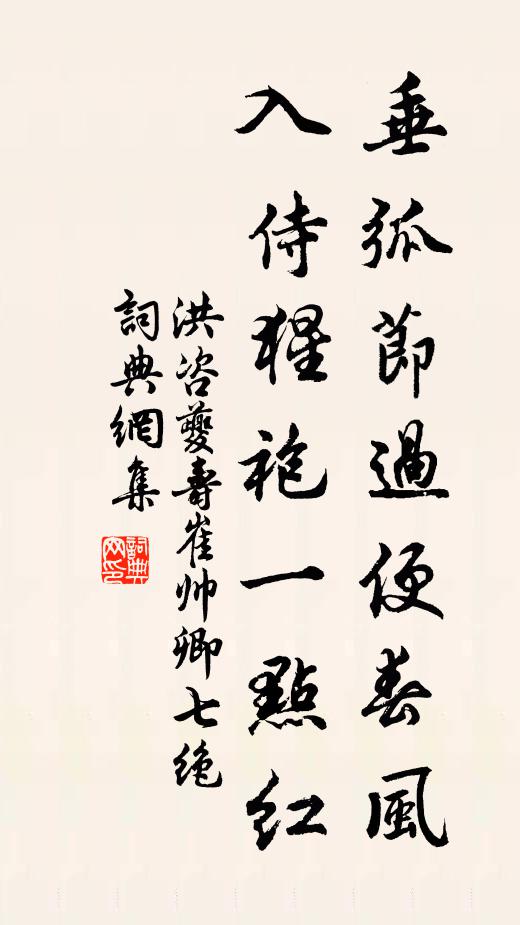 垂弧節過便春風
入侍猩袍一點紅
洪咨夔壽崔帅卿七绝
詞典網集
詞典网印